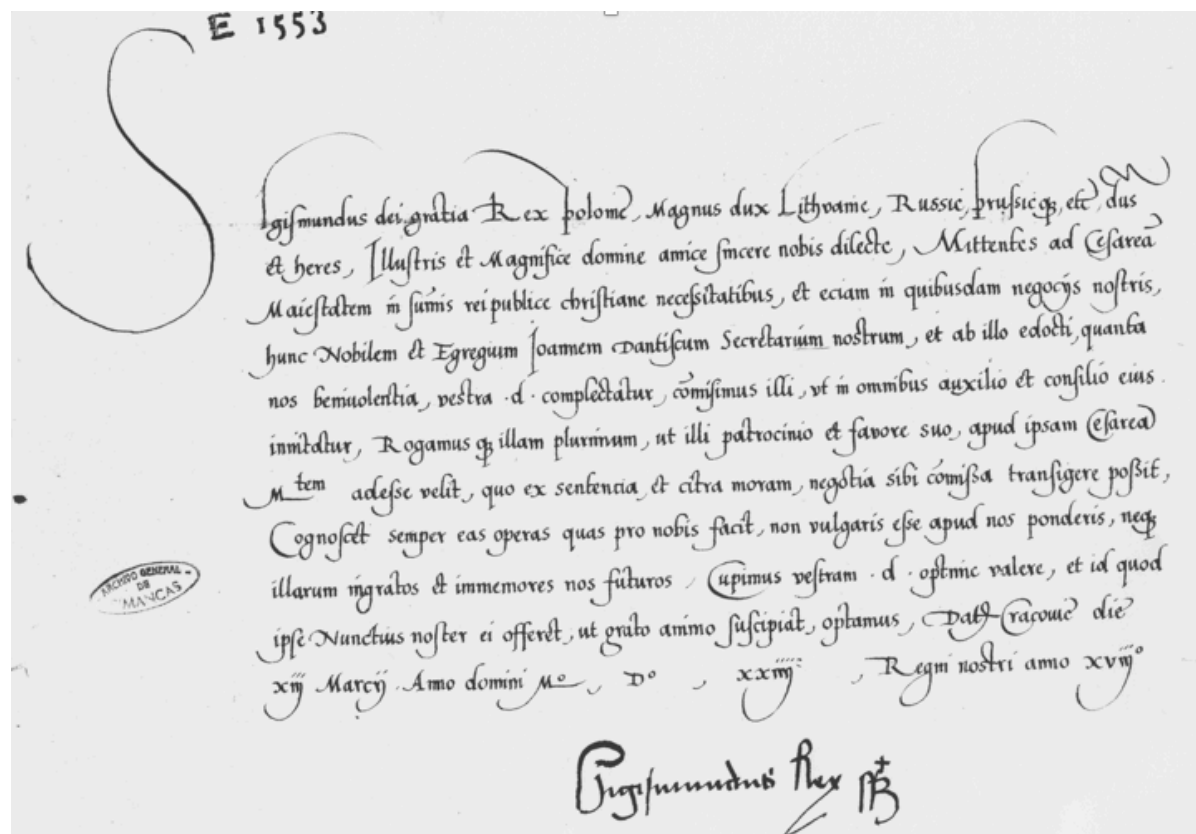 E 1553
Sigismundus dei gratia Rex polonię, Magnus dux Lithvanię, Russię, prussięq₃, etc̄, dn̄s
et heres, Illustris et Magnifice domine amice sincere nobis dilecte, Mittentes ad Cesareā
Maiestatem in sum̄is rei publice christiane necessitatibus, et eciam in quibusdam negocijs nostris,
hunc Nobilem et Egregium Joannem Dantiscum Secretarium nostrum, et ab illo edocti, quanta
nos beniuolentia, vestra .d. complectatur, com̄isimus illi, vt in omnibus auxilio et consilio eius
innitatur, Rogamus q₃ illam plurimum, ut illi patrocinio et favore suo, apud ipsam Cesareā
M.tem adesse velit, quo ex sententia, et citra moram, negotia sibi com̄issa transigere possit,
Cognoscet semper eas operas quas pro nobis facit, non vulgaris esse apud nos ponderis, neq₃
illarum ingratos et immemores nos futuros. Cupimus vestram .d. optime valere, et id quod
ipse Nunctius noster ei offeret, ut grato animo suscipiat, optamus, Dat Cracovię die
xiij Marcij. Anno domini Mo, Do, xxiiij, Regni nostri anno xviijo
ARCHIVO GENERAL
DE
SIMANCAS
Sigismundus Rex